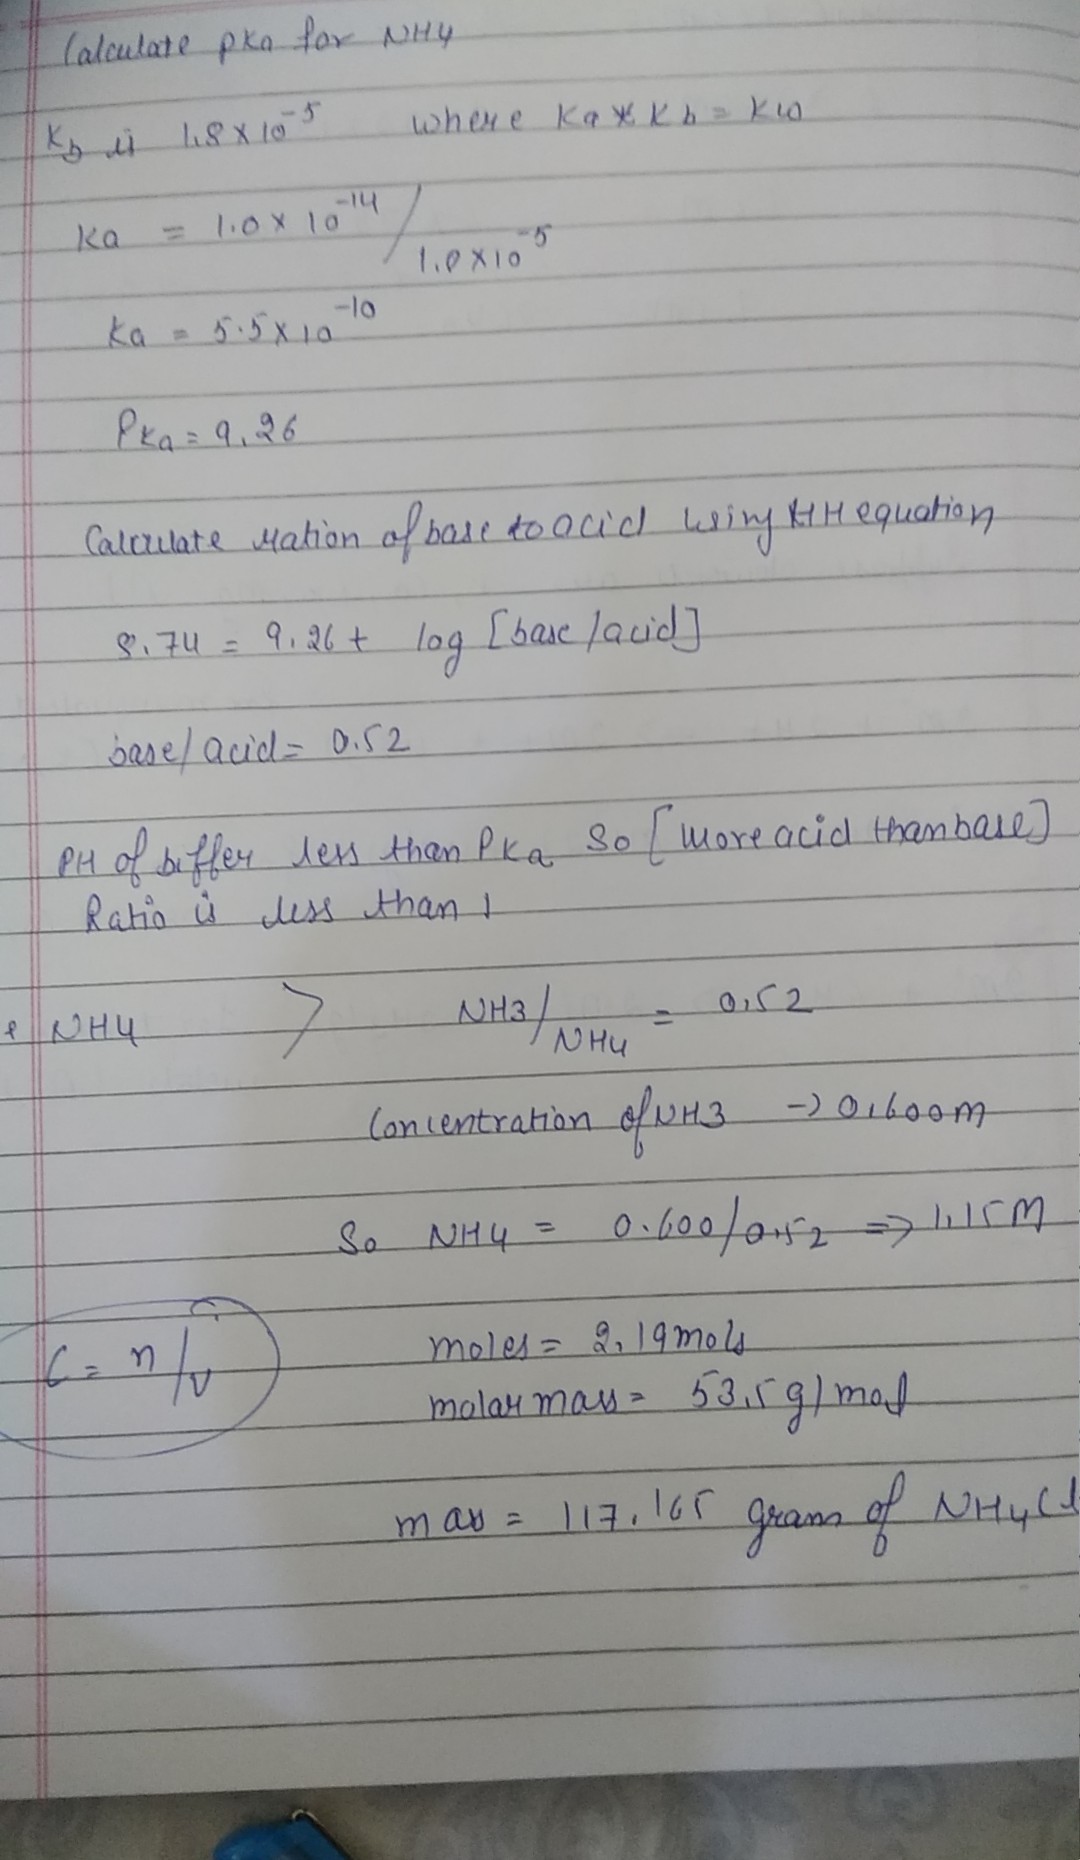 Calculate pKa for NH4
Kb is 1.8 × 10^-5 where Ka * Kb = Kw
Ka = 1.0 × 10^-14 / 1.8 × 10^-5
Ka = 5.5 × 10^-10
PKa = 9.26
Calculate ration of base to acid using HH equation
8.74 = 9.26 + log [base/acid]
base/acid = 0.52
PH of buffer less than PKa So [more acid than base]
Ratio is less than 1
NH4 > NH3/NH4 = 0.52
Concentration of NH3 -> 0.600m
So NH4 = 0.600/0.52 => 1.15M
C = n/v moles = 2.19 mols
molar mass = 53.5 g/mol
mass = 117.165 grams of NH4Cl